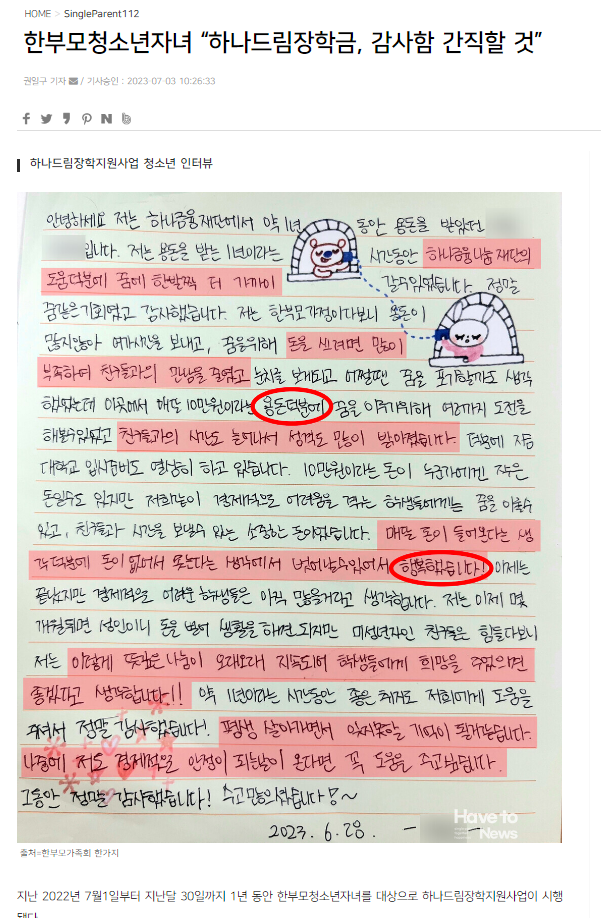 HOME > SingleParent112
한부모청소년자녀 “하나드림장학금, 감사함 간직할 것”
권일구 기자 / 기사승인 : 2023-07-03 10:26:33
하나드림장학지원사업 청소년 인터뷰
안녕하세요 저는 하나금융재단에서 약 1년 동안 용돈을 받았던
입니다. 저는 용돈을 받는 1년이라는 시간동안 하나금융나눔 재단의
도움덕분에 꿈에 한발짝 더 가까이 갈수있었습니다. 정말
꿈같은기회였고 감사했습니다. 저는 한부모가정이다보니 용돈이
많지않아 여가시간을 보내고, 꿈을위해 돈을 쓰려면 많이
부족하여 친구들과의 만남을 줄였고 눈치를 보게되고 어쩔땐 꿈을 포기할까도 생각
했었는데 이곳에서 매달 10만원이라는 용돈덕분에 꿈을 이루기위해 여러가지 도전을
해볼수있었고 친구들과의 시간도 늘어나서 성격도 많이 밝아졌습니다. 덕분에 지금
대학교 입시준비도 열심히 하고 있습니다. 10만원이라는 돈이 누군가에겐 작은
돈일수도 있지만 저희같이 경제적으로 어려움을 겪는 학생들에게는 꿈을 이룰수
있고, 친구들과 시간을 보낼수 있는 소중한 돈이었습니다. 매달 돈이 들어온다는 생
각덕분에 돈이 없어서 못논다는 생각에서 벗어날수있어서 행복했습니다! 이제는
끝났지만 경제적으로 어려운 학생들은 아직 많을거라고 생각합니다. 저는 이제 몇
개월뒤면 성인이니 돈을 벌어 생활을 하면 되지만 미성년자인 친구들은 힘들다보니
저는 이렇게 뜻깊은 나눔이 오래오래 지속되어 학생들에게 희망을 주었으면
좋겠다고 생각합니다!! 약 1년이라는 시간동안 좋은 취지로 저희에게 도움을
주셔서 정말 감사했습니다! 평생 살아가면서 잊지못할 기억이 될거같습니다.
나중에 저도 경제적으로 안정이 되는날이 온다면 꼭 도움을 주고싶습니다.
그동안 정말 감사했습니다! 수고많으셨습니다!~
2023. 6. 28. - -
Have to News
출처=한부모가족회 한가지
지난 2022년 7월1일부터 지난달 30일까지 1년 동안 한부모청소년자녀를 대상으로 하나드림장학지원사업이 시행
됐다